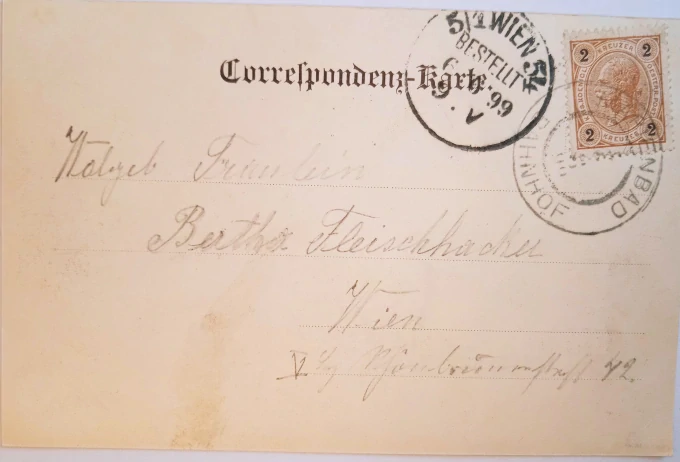 Correspondenz-Karte.
5/1 WIEN 54
BESTELLT
99
9. V
2 KREUZER 2
2 KREUZER 2
BAHNHOF
NBAD
Wolgeb Fräulein
Bertha Fleischhacker
Wien
V Schönbrunnerstraße 42.